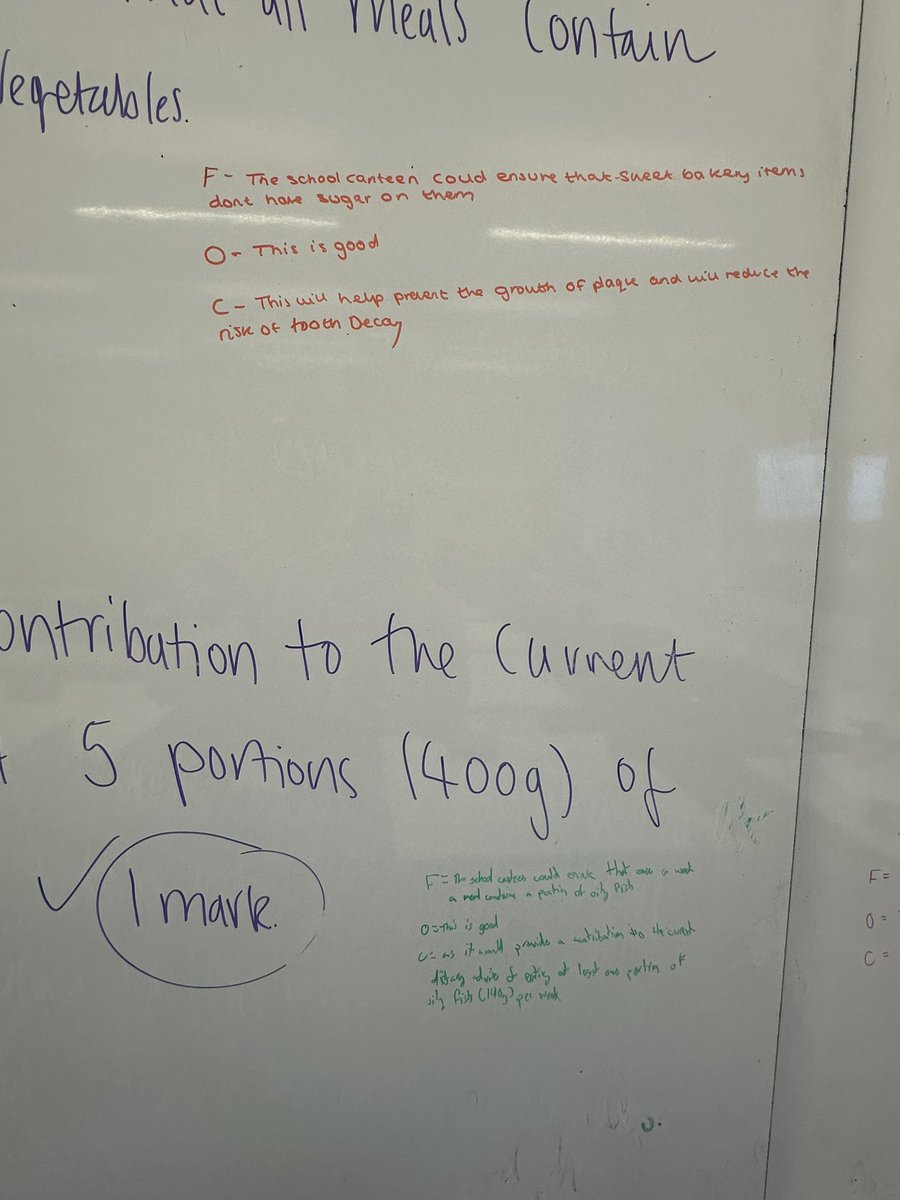 all meals contain
Vegetables.
F- The school canteen coud ensure that sweet bakery items
dont have sugar on them
O- This is good
C- This will help prevent the growth of plaque and will reduce the
risk of tooth Decay
ontribution to the current
5 portions (400g) of
1 mark.
F= The school canteen could ensure that once a week
a meal contains a portion of oily fish
O=This is good
C= as it would provide a contribution to the current
dietary advice of eating at least one portion of
oily fish (140g) per week.
F=
O=
C=